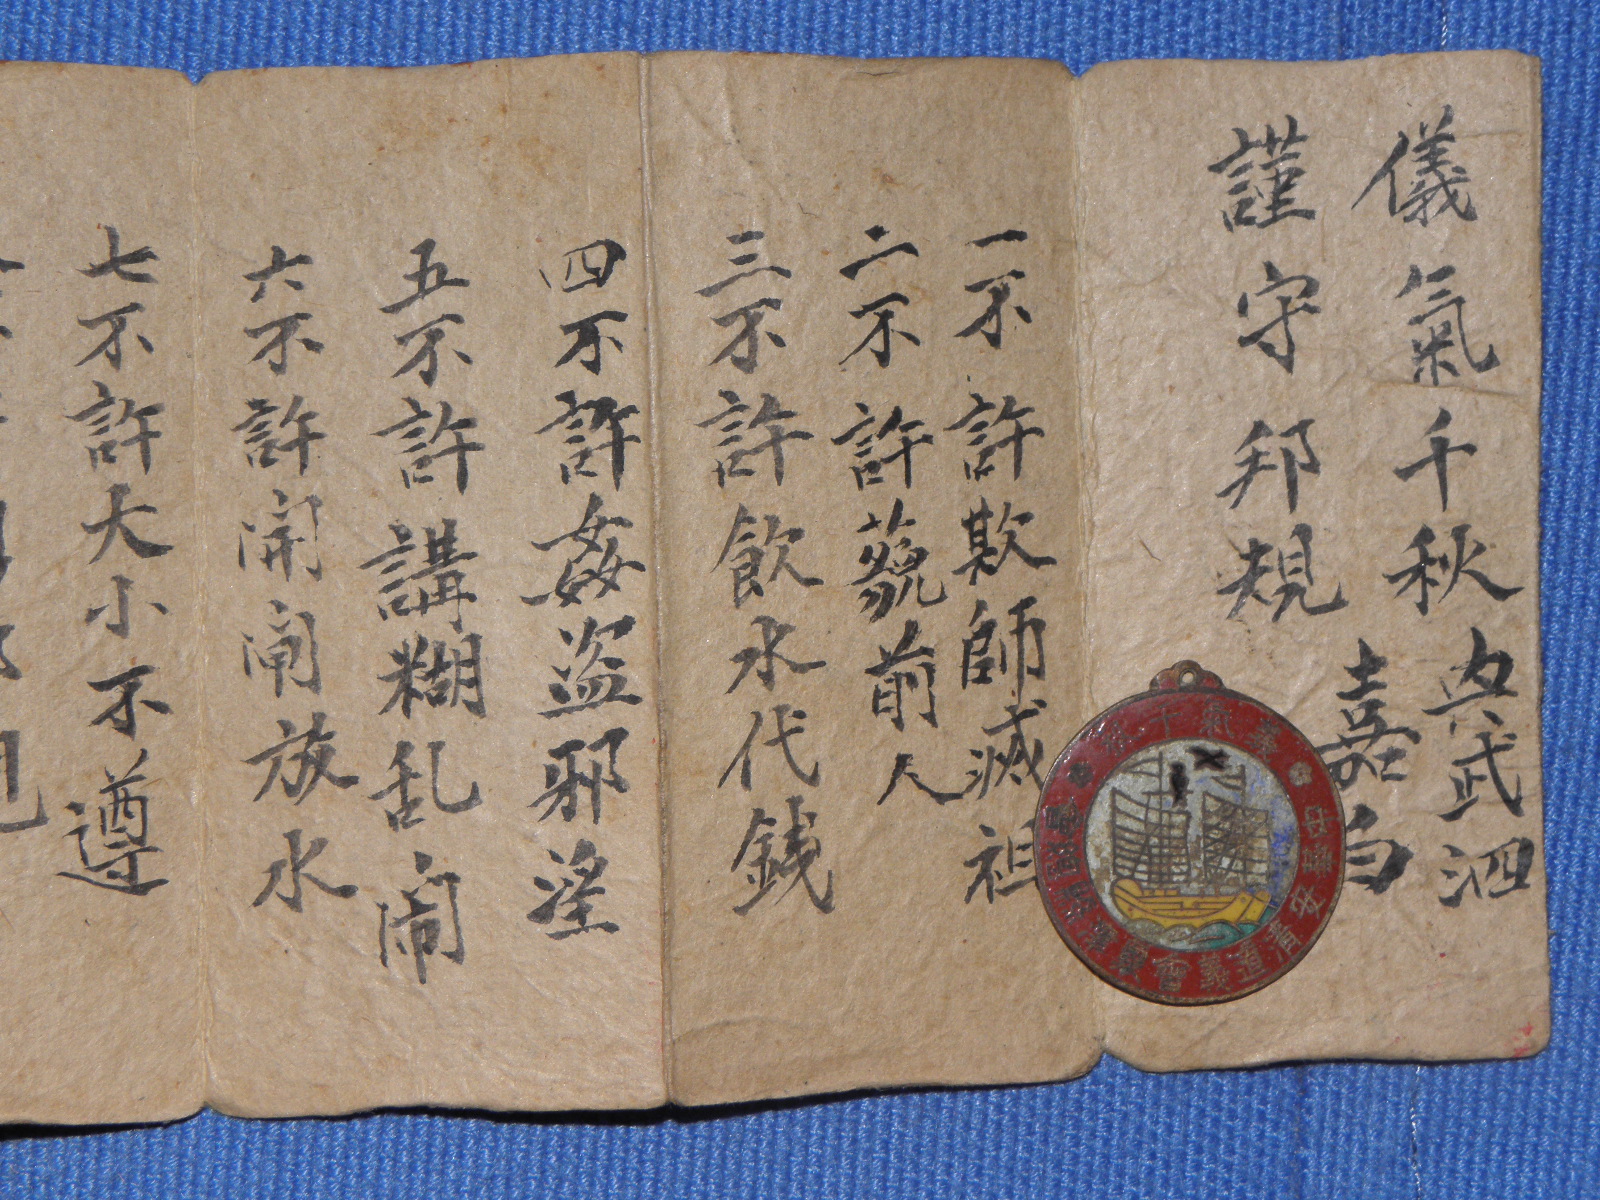 儀氣千秋 興武泗
謹守邦規 嘉白
一不許欺師滅祖
二不許藐前人
三不許飲水代銭
四不許姦盗邪淫
五不許講糊乱鬧
六不許開閘放水
七不許大小不遵
義氣千秋
安清道義會